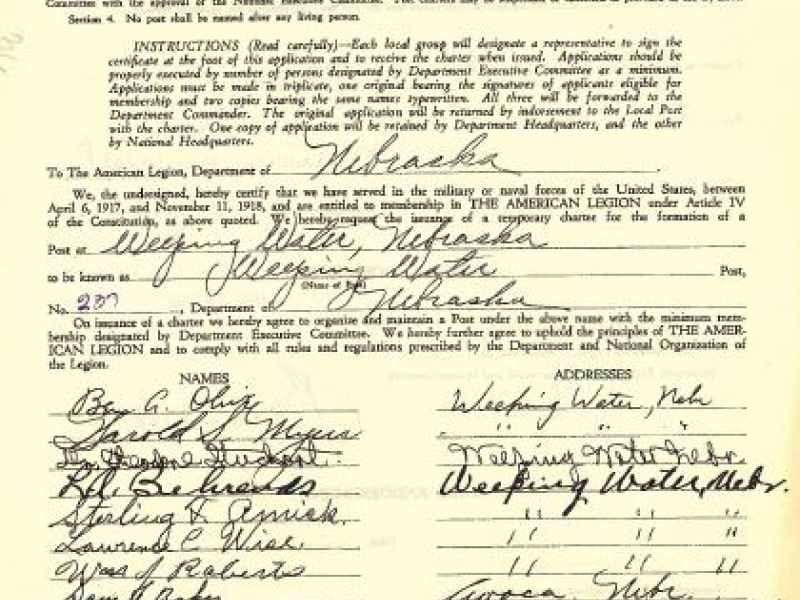 Section 4. No post shall be named after any living person.
INSTRUCTIONS (Read carefully)—Each local group will designate a representative to sign the
certificate at the foot of this application and to receive the charter when issued. Applications should be
properly executed by number of persons designated by Department Executive Committee as a minimum.
Applications must be made in triplicate, one original bearing the signatures of applicants eligible for
membership and two copies bearing the same names typewritten. All three will be forwarded to the
Department Commander. The original application will be returned by indorsement to the Local Post
with the charter. One copy of application will be retained by Department Headquarters, and the other
by National Headquarters.
To The American Legion, Department of Nebraska
We, the undersigned, hereby certify that we have served in the military or naval forces of the United States, between
April 6, 1917, and November 11, 1918, and are entitled to membership in THE AMERICAN LEGION under Article IV
of the Constitution, as above quoted. We hereby request the issuance of a temporary charter for the formation of a
Post at Weeping Water, Nebraska
to be known as Weeping Water Post,
(Name of Post)
No. 237, Department of Nebraska
On issuance of a charter we hereby agree to organize and maintain a Post under the above name with the minimum mem-
bership designated by Department Executive Committee. We hereby further agree to uphold the principles of THE AMER-
ICAN LEGION and to comply with all rules and regulations prescribed by the Department and National Organization of
the Legion.
NAMES ADDRESSES
Ben A. Olive Weeping Water, Nebr
Harold S. Myers " " "
Weeping Water Nebr.
L.A. Behrends Weeping Water, Nebr.
Sterling F. Amick. " " "
Lawrence C. Wise. " " "
Wm J Roberts " " "
Avoca, Nebr.